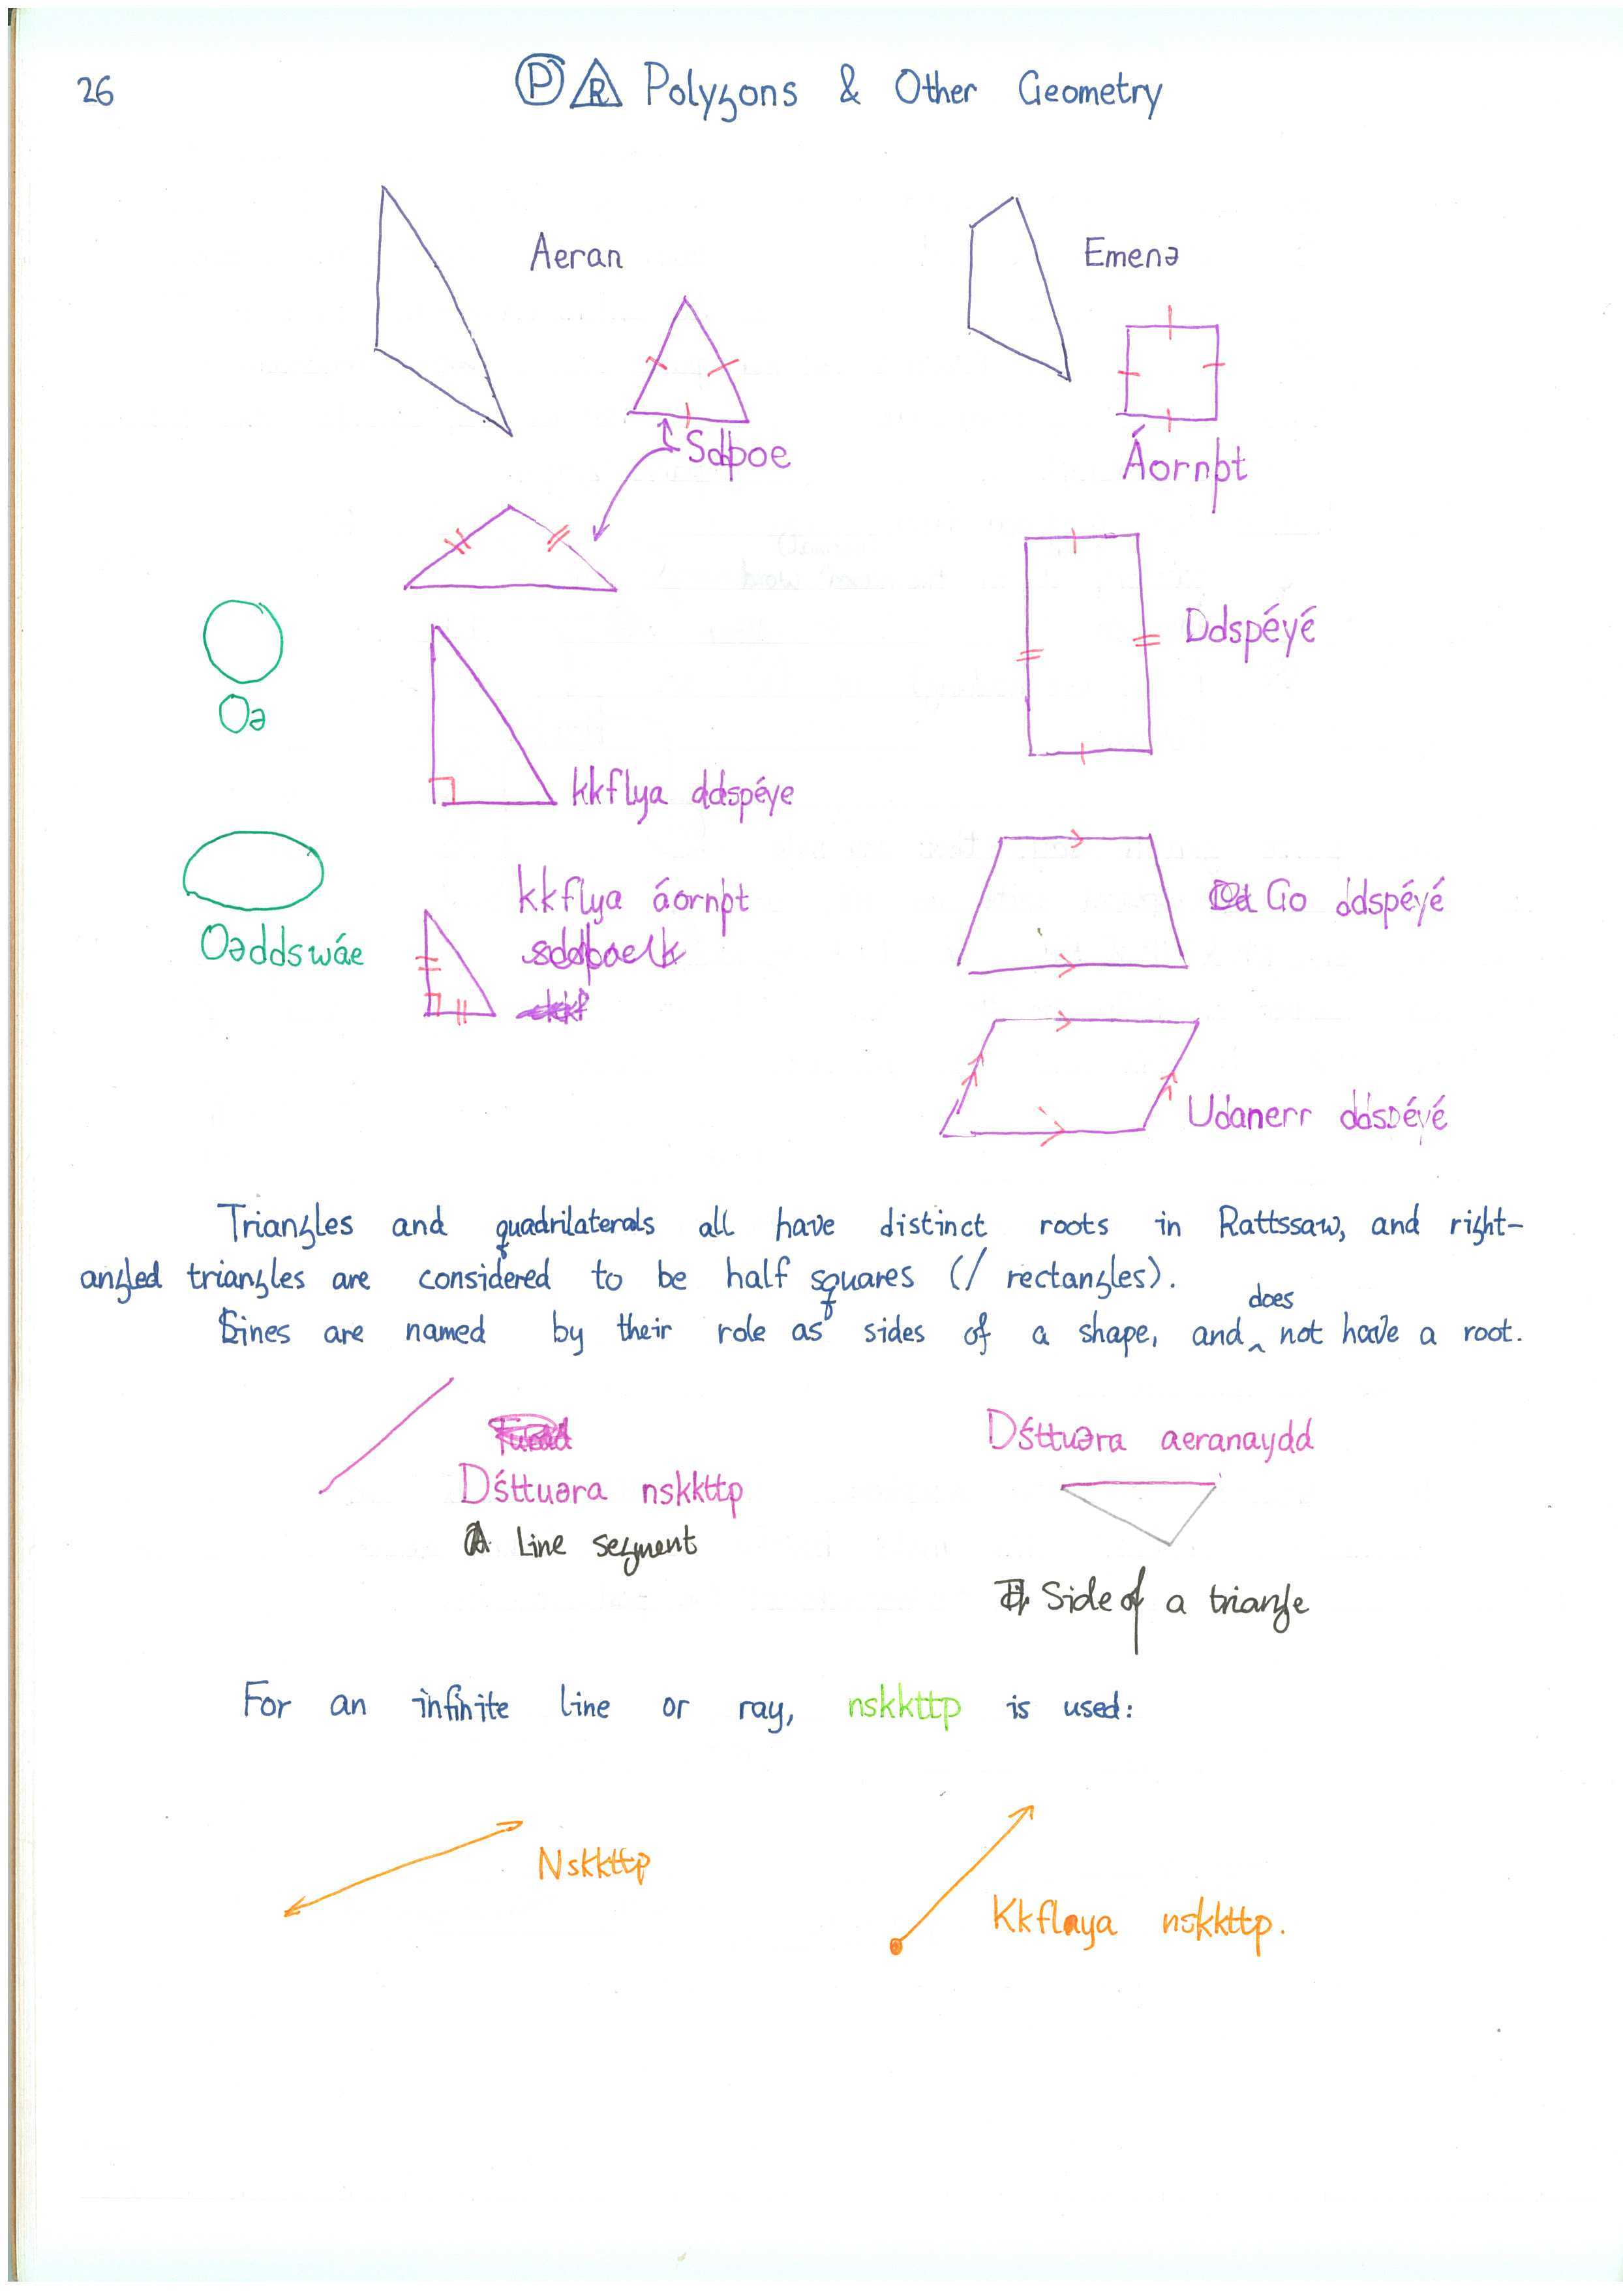 26
P R Polygons & Other Geometry
Aeran
Emenə
Sdþoe
Áornþt
Ddspéyé
Oə
kkflya ddspéye
kkflya áornþt
Go ddspéyé
Oəddswáe
Udanerr ddspéyé
Triangles and quadrilaterals all have distinct roots in Rattssaw, and right-
angled triangles are considered to be half squares (/ rectangles).
Lines are named by their role as sides of a shape, and does not have a root.
Dśttuəra aeranaydd
Dśttuəra nskkttp
A Line segment
Side of a triangle
For an infinite line or ray, nskkttp is used:
Nskkttp
Kkflaya nskkttp.